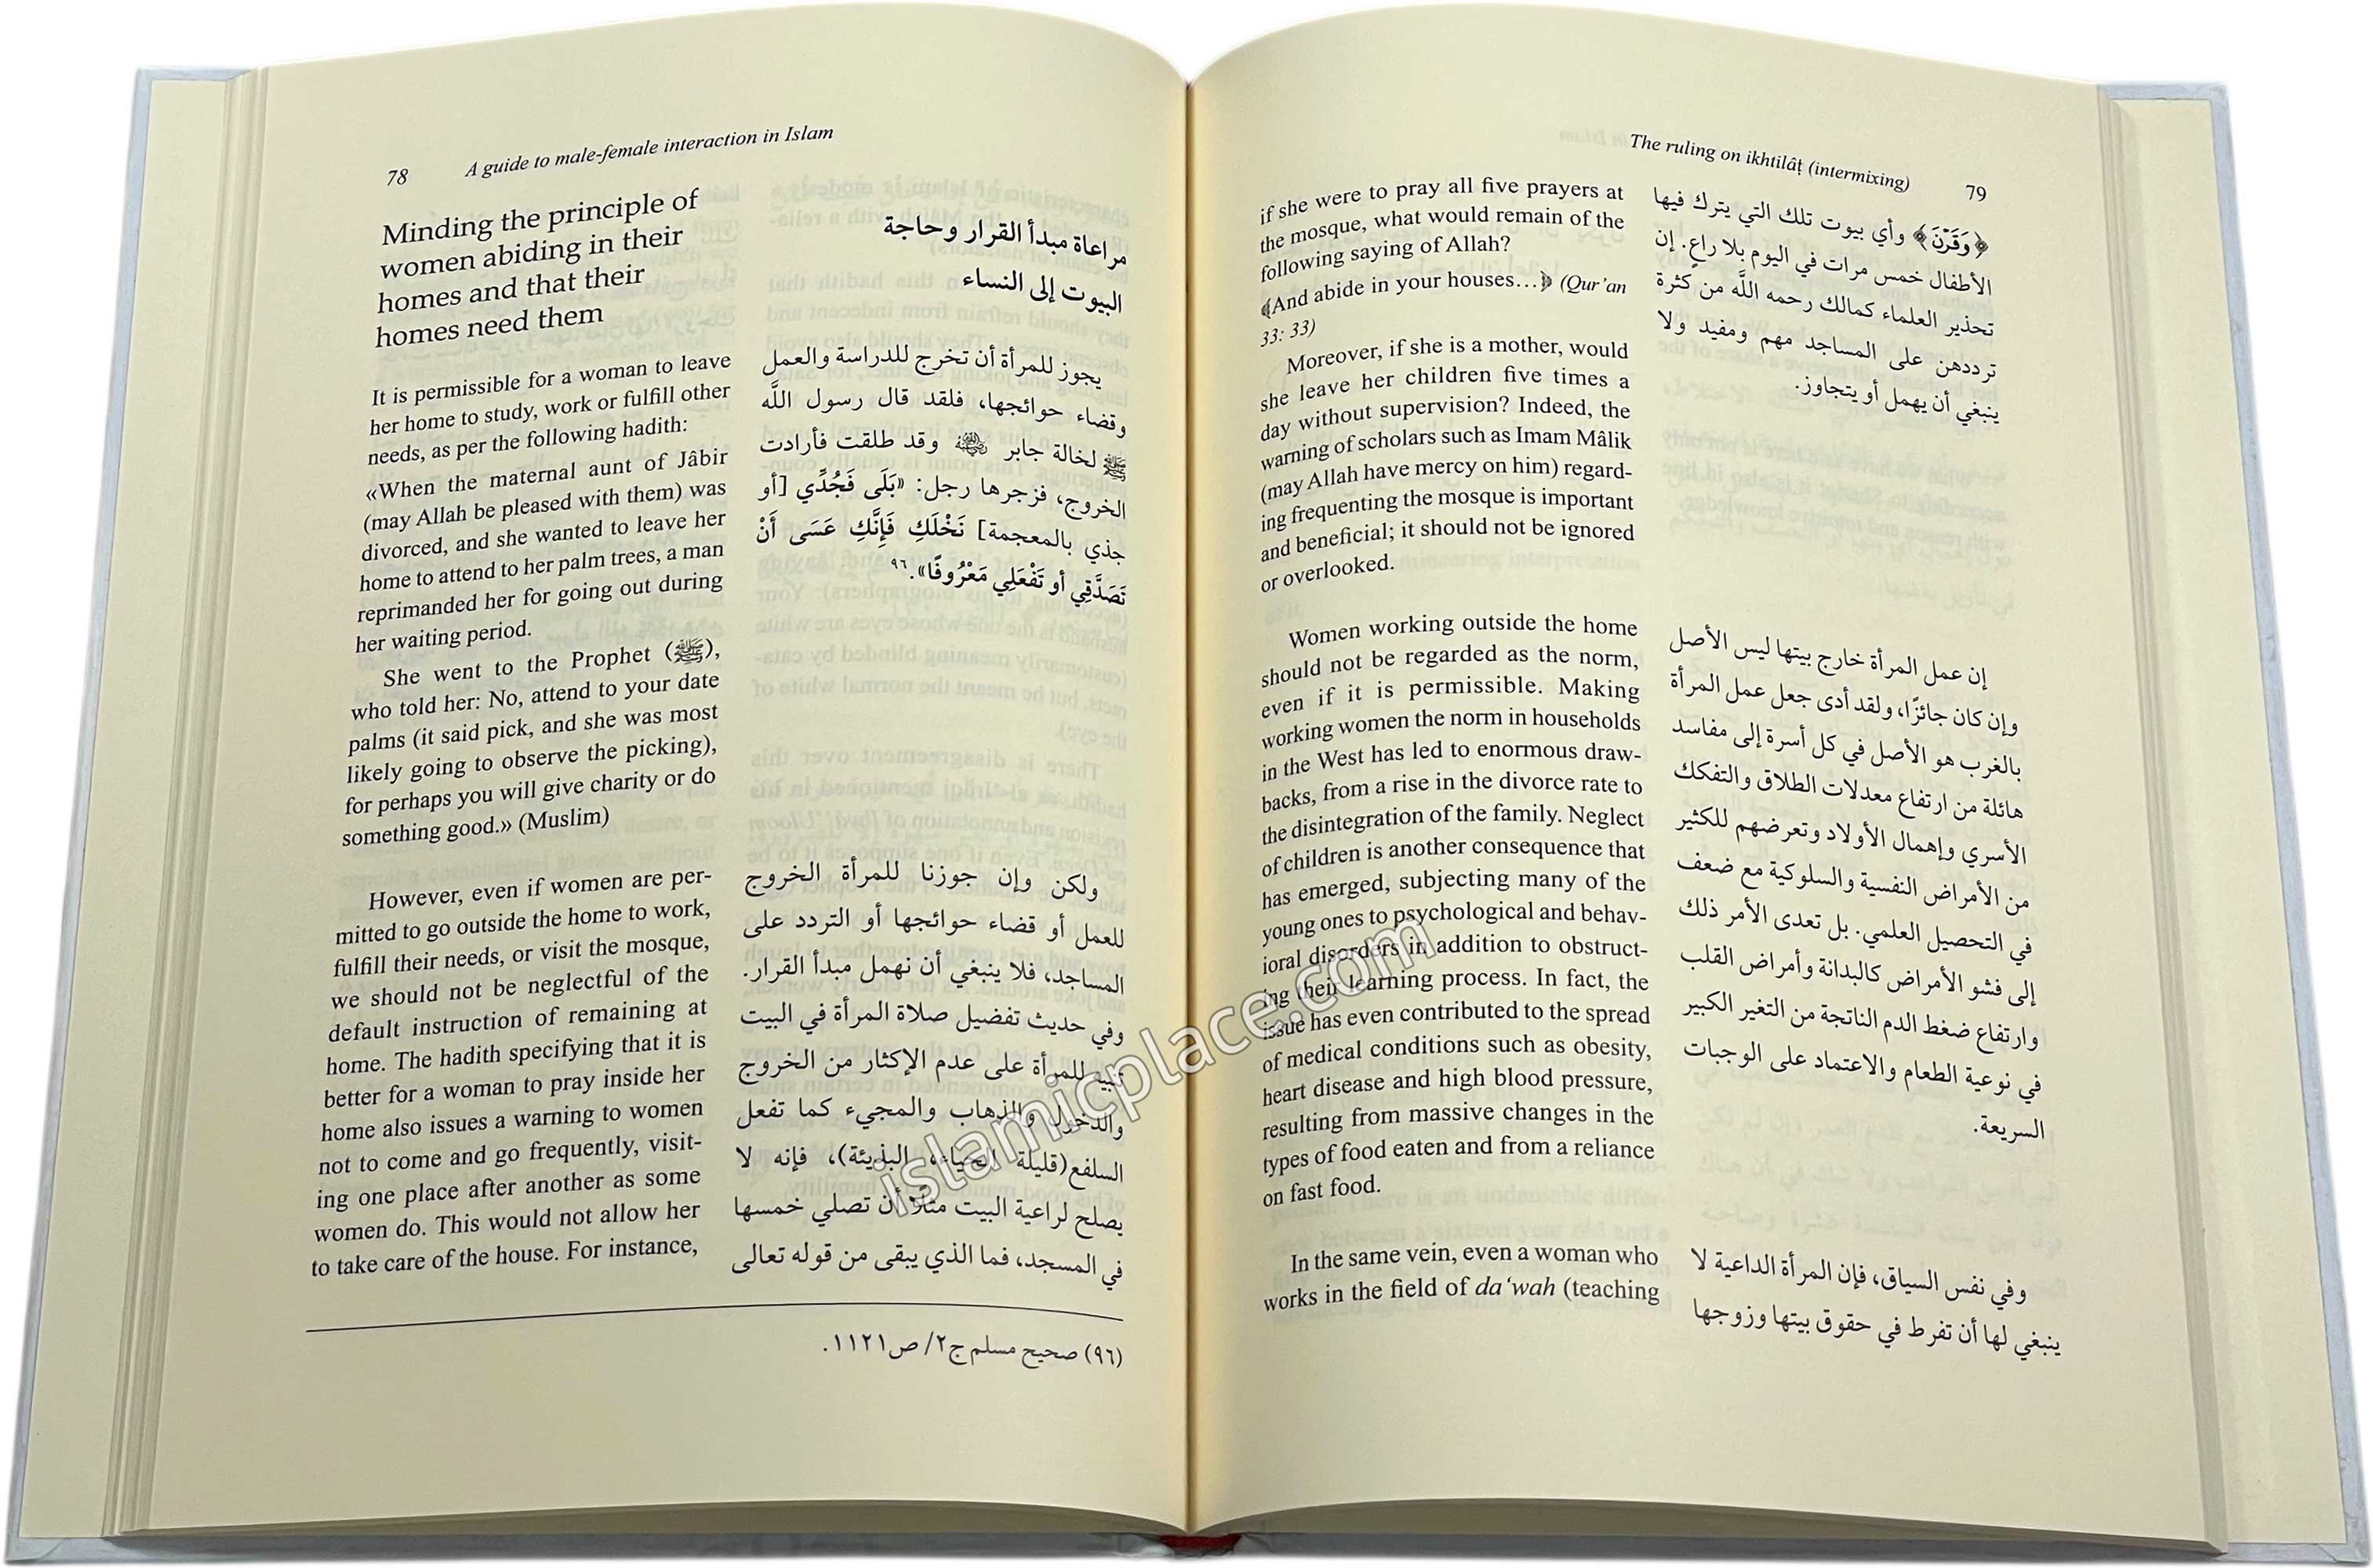 78 A guide to male-female interaction in Islam
Minding the principle of
women abiding in their
homes and that their
homes need them
It is permissible for a woman to leave
her home to study, work or fulfill other
needs, as per the following hadith:
«When the maternal aunt of Jâbir
(may Allah be pleased with them) was
divorced, and she wanted to leave her
home to attend to her palm trees, a man
reprimanded her for going out during
her waiting period.
She went to the Prophet (ﷺ),
who told her: No, attend to your date
palms (it said pick, and she was most
likely going to observe the picking),
for perhaps you will give charity or do
something good.» (Muslim)
However, even if women are per-
mitted to go outside the home to work,
fulfill their needs, or visit the mosque,
we should not be neglectful of the
default instruction of remaining at
home. The hadith specifying that it is
better for a woman to pray inside her
home also issues a warning to women
not to come and go frequently, visit-
ing one place after another as some
women do. This would not allow her
to take care of the house. For instance,
مراعاة مبدأ القرار وحاجة
البيوت إلى النساء
يجوز للمرأة أن تخرج للدراسة والعمل
وقضاء حوائجها، فلقد قال رسول اللَّه
ﷺ لخالة جابر وقد طلقت فأرادت
الخروج، فزجرها رجل: «بَلَى فَجُدِّي [أو
جذي بالمعجمة] نَخْلَكِ فَإِنَّكِ عَسَى أَنْ
تَصَدَّقِي أو تَفْعَلِي مَعْرُوفًا».٩٦
ولكن وإن جوزنا للمرأة الخروج
للعمل أو قضاء حوائجها أو التردد على
المساجد، فلا ينبغي أن نهمل مبدأ القرار.
وفي حديث تفضيل صلاة المرأة في البيت
تنبيه للمرأة على عدم الإكثار من الخروج
والدخول والذهاب والمجيء كما تفعل
السلفع(قليلة الحياء، البذيئة)، فإنه لا
يصلح لراعية البيت مثلًا أن تصلي خمسها
في المسجد، فما الذي يبقى من قوله تعالى
(٩٦) صحيح مسلم ج٢/ ص١١٢١.
The ruling on ikhtilâṭ (intermixing) 79
if she were to pray all five prayers at
the mosque, what would remain of the
following saying of Allah?
﴿And abide in your houses…﴾ (Qur’an
33: 33)
Moreover, if she is a mother, would
she leave her children five times a
day without supervision? Indeed, the
warning of scholars such as Imam Mâlik
(may Allah have mercy on him) regard-
ing frequenting the mosque is important
and beneficial; it should not be ignored
or overlooked.
Women working outside the home
should not be regarded as the norm,
even if it is permissible. Making
working women the norm in households
in the West has led to enormous draw-
backs, from a rise in the divorce rate to
the disintegration of the family. Neglect
of children is another consequence that
has emerged, subjecting many of the
young ones to psychological and behav-
ioral disorders in addition to obstruct-
ing their learning process. In fact, the
issue has even contributed to the spread
of medical conditions such as obesity,
heart disease and high blood pressure,
resulting from massive changes in the
types of food eaten and from a reliance
on fast food.
In the same vein, even a woman who
works in the field of da‘wah (teaching
﴿وَقَرْنَ﴾ وأي بيوت تلك التي يترك فيها
الأطفال خمس مرات في اليوم بلا راعٍ. إن
تحذير العلماء كمالك رحمه اللَّه من كثرة
ترددهن على المساجد مهم ومفيد ولا
ينبغي أن يهمل أو يتجاوز.
إن عمل المرأة خارج بيتها ليس الأصل
وإن كان جائزًا، ولقد أدى جعل عمل المرأة
بالغرب هو الأصل في كل أسرة إلى مفاسد
هائلة من ارتفاع معدلات الطلاق والتفكك
الأسري وإهمال الأولاد وتعرضهم للكثير
من الأمراض النفسية والسلوكية مع ضعف
في التحصيل العلمي. بل تعدى الأمر ذلك
إلى فشو الأمراض كالبدانة وأمراض القلب
وارتفاع ضغط الدم الناتجة من التغير الكبير
في نوعية الطعام والاعتماد على الوجبات
السريعة.
وفي نفس السياق، فإن المرأة الداعية لا
ينبغي لها أن تفرط في حقوق بيتها وزوجها
islamicplace.com